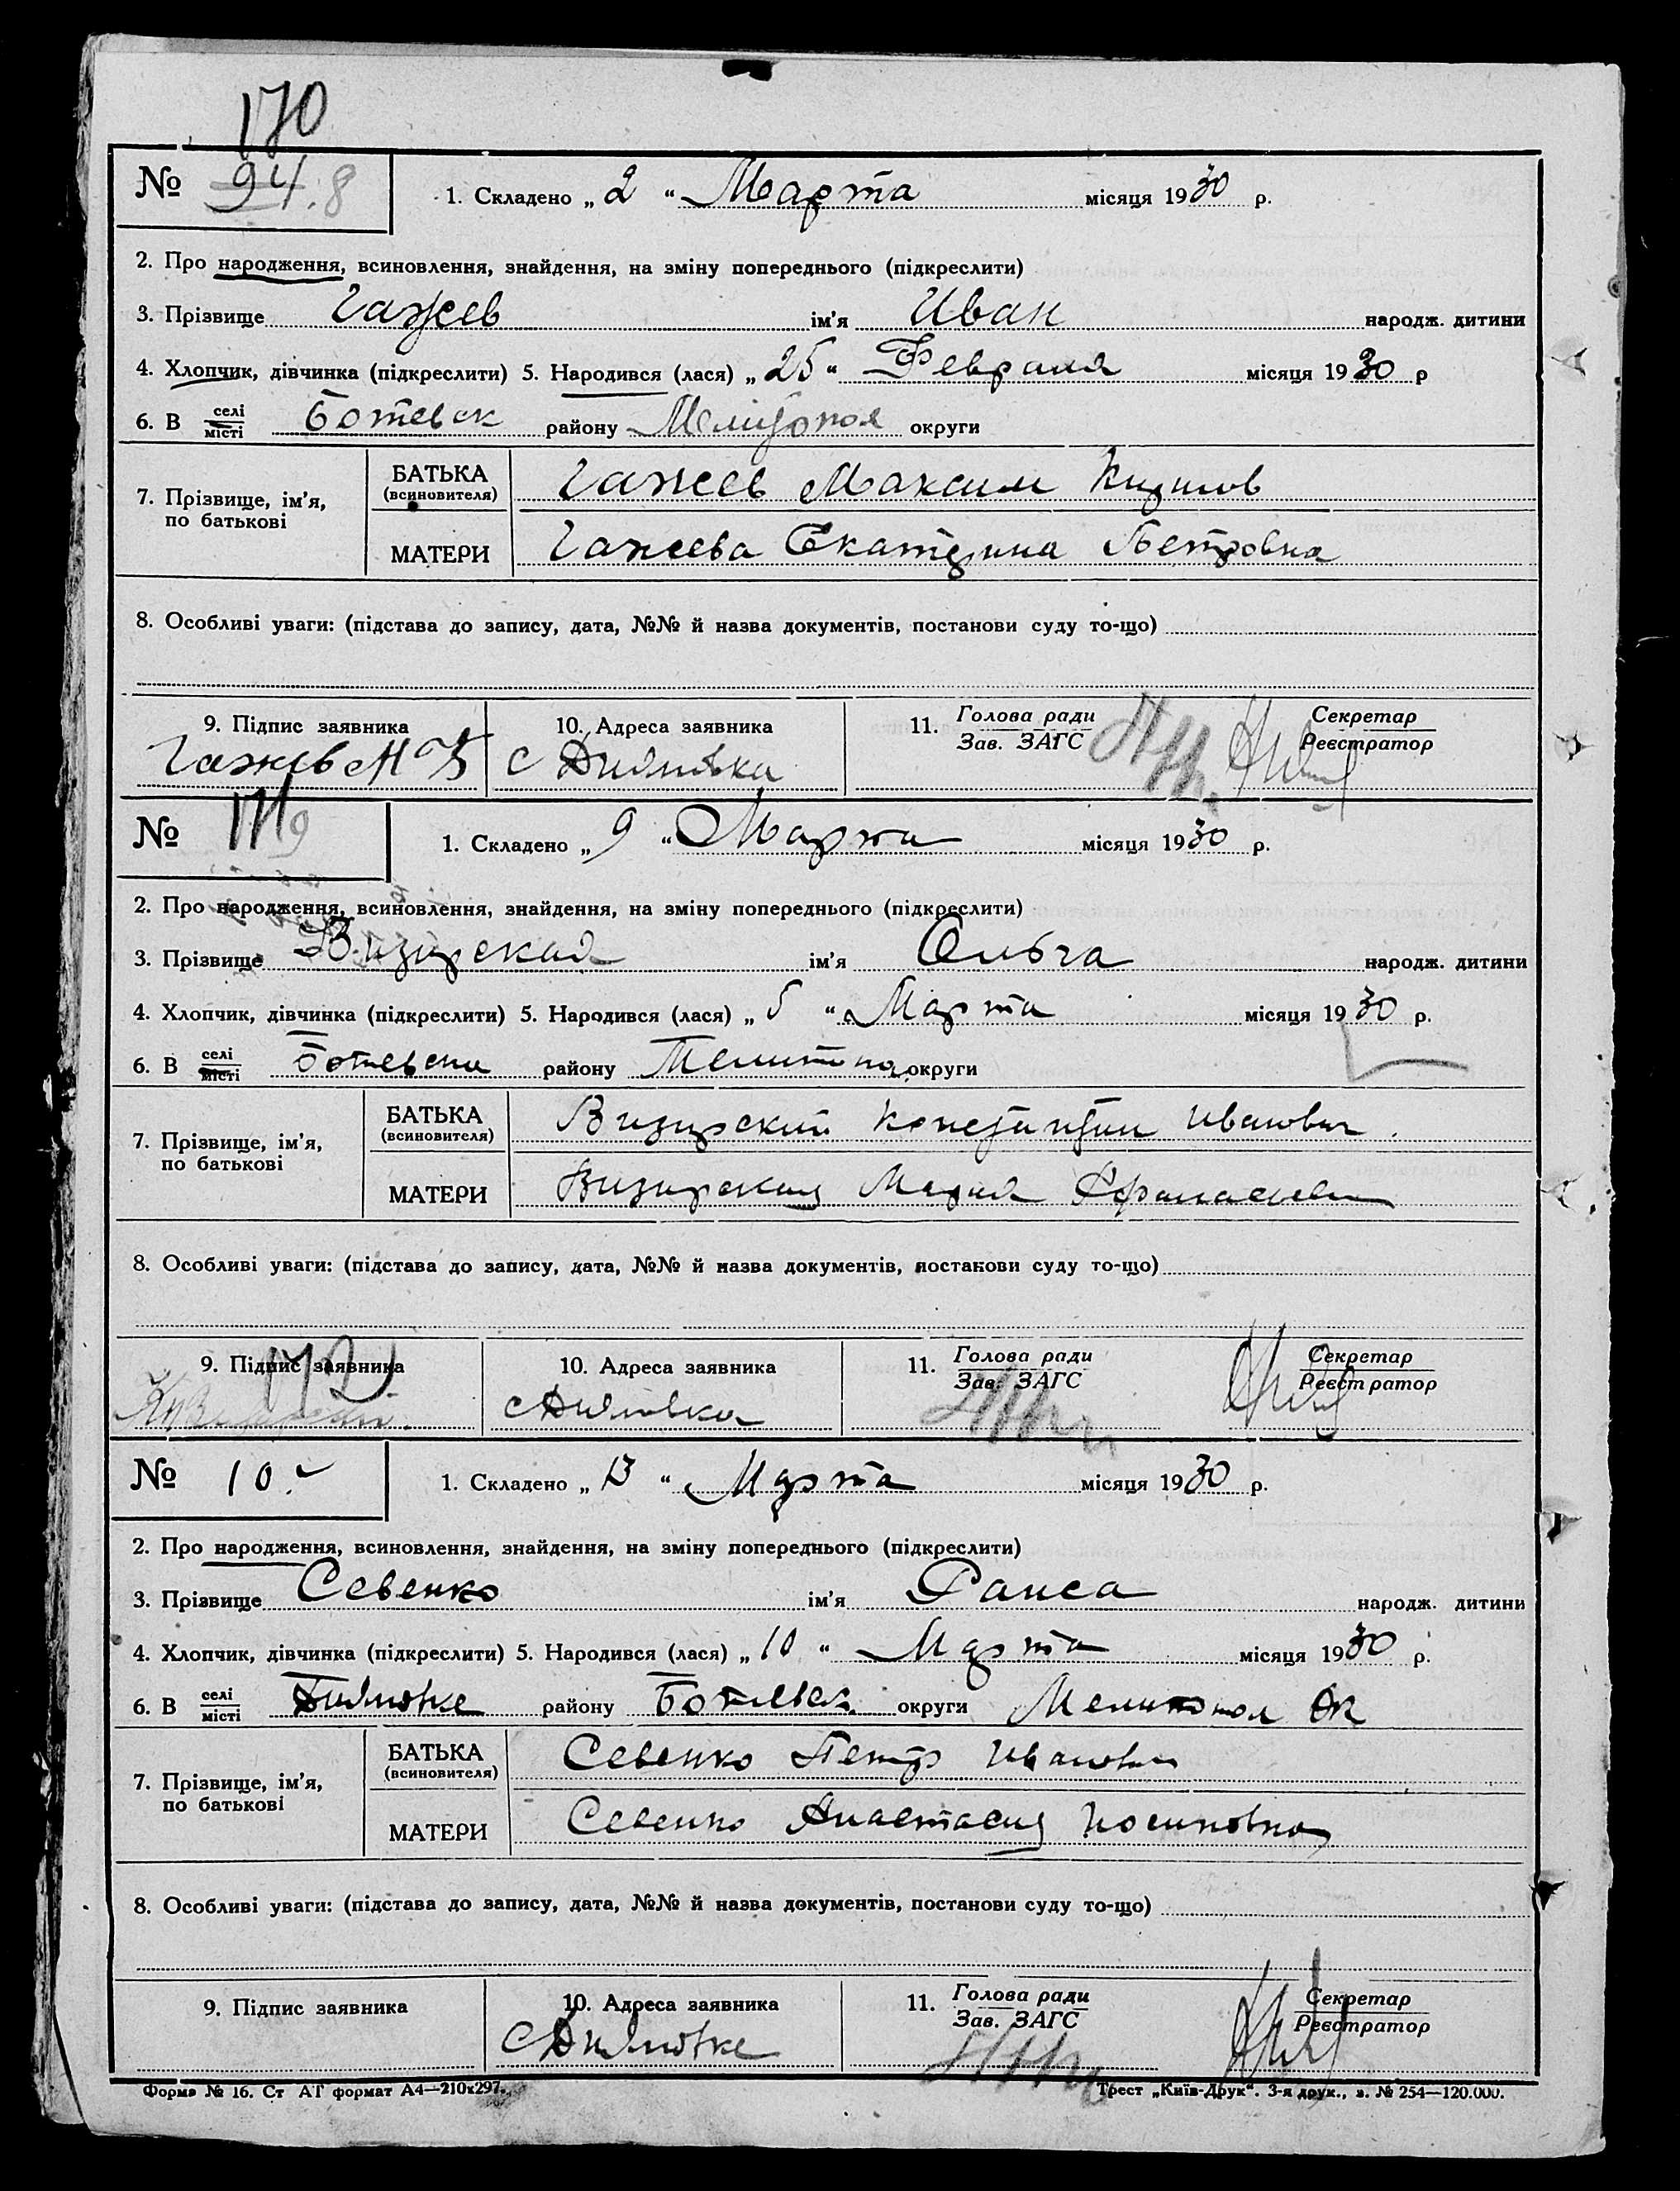 170
№ 94. 8
1. Складено „ 2 “ Марта місяця 1930 р.
2. Про народження, всиновлення, знайдення, на зміну попереднього (підкреслити)
3. Прізвище Гажев ім’я Иван народж. дитини
4. Хлопчик, дівчинка (підкреслити) 5. Народився (лася) „ 25 “ Февраля місяця 1930 р
6. В селі місті Ботевск району Мелитопол округи
7. Прізвище, ім’я, по батькові
БАТЬКА (всиновителя) Гажев Максим Кирилов
МАТЕРИ Гажева Екатерина Петровна
8. Особливі уваги: (підстава до запису, дата, №№ й назва документів, постанови суду то-що)
9. Підпис заявника 10. Адреса заявника 11. Голова ради Зав. ЗАГС Секретар Реєстратор
Гажев М К с
№ 171 9
1. Складено „ 9 “ Марта місяця 1930 р.
2. Про народження, всиновлення, знайдення, на зміну попереднього (підкреслити)
3. Прізвище Визирская ім’я Ольга народж. дитини
4. Хлопчик, дівчинка (підкреслити) 5. Народився (лася) „ 5 “ Марта місяця 1930 р.
6. В селі місті району округи
7. Прізвище, ім’я, по батькові
БАТЬКА (всиновителя) Визирский Константин Иванович
МАТЕРИ Визирская Мария
8. Особливі уваги: (підстава до запису, дата, №№ й назва документів, постанови суду то-що)
9. Підпис заявника 10. Адреса заявника 11. Голова ради Зав. ЗАГС Секретар Реєстратор
172
№ 10.
1. Складено „ 13 “ Марта місяця 1930 р.
2. Про народження, всиновлення, знайдення, на зміну попереднього (підкреслити)
3. Прізвище Севенко ім’я Раиса народж. дитини
4. Хлопчик, дівчинка (підкреслити) 5. Народився (лася) „ 10 “ Марта місяця 1930 р.
6. В селі місті району Ботевск. округи Мелитопол Ок
7. Прізвище, ім’я, по батькові
БАТЬКА (всиновителя) Севенко Петр Иванович
МАТЕРИ Севенко Анастасия Иосиповна
8. Особливі уваги: (підстава до запису, дата, №№ й назва документів, постанови суду то-що)
9. Підпис заявника 10. Адреса заявника 11. Голова ради Зав. ЗАГС Секретар Реєстратор
Форма № 16. Ст АГ формат А4—210х297. Трест „Київ-Друк“. 3-я друк., з. № 254—120.000.